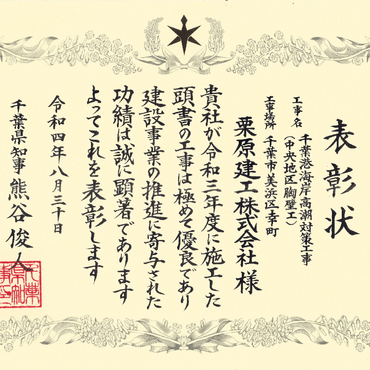 表彰状
工事名 千葉港海岸高潮対策工事
（中央地区胸壁工）
工事場所 千葉市美浜区幸町
栗原建工株式会社 様
貴社が令和三年度に施工した
頭書の工事は極めて優良であり
建設事業の推進に寄与された
功績は誠に顕著であります
よってこれを表彰します
令和四年八月三十日
千葉県知事 熊谷俊人